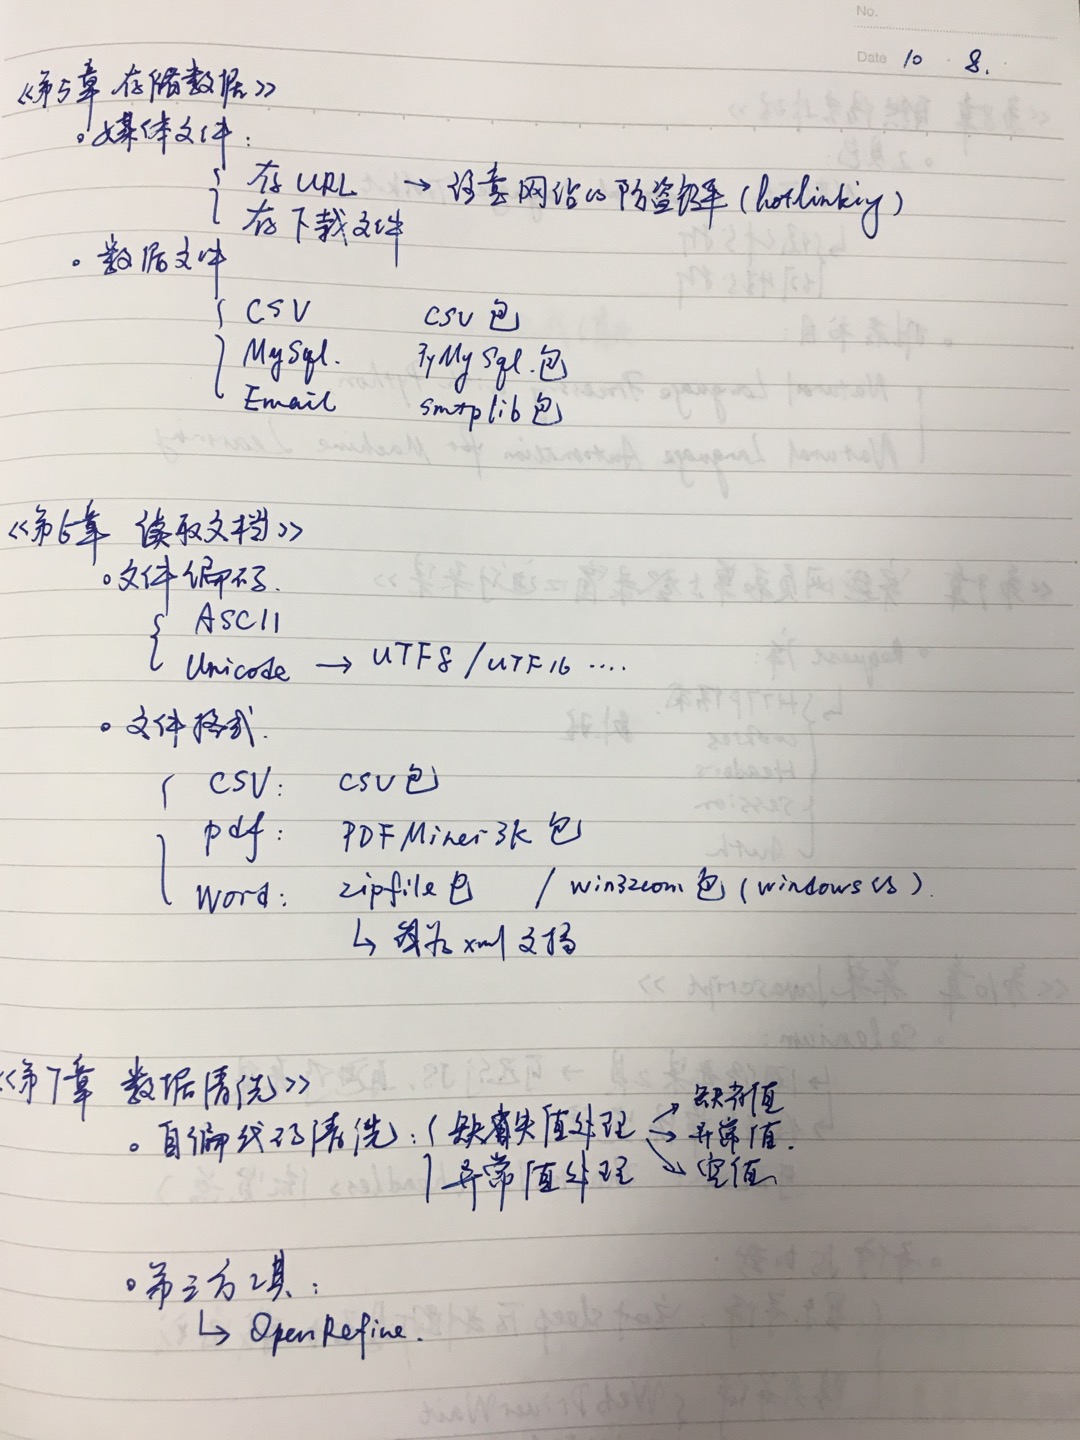 No.
Date 10 · 8.
《第5章 存储数据》
。媒体文件：
存URL → 注意网站的防盗链（hotlinking）
存下载文件
。数据文件
CSV CSV包
MySql. PyMySql.包
Email smtplib包
《第6章 读取文档》
。文件编码.
ASCII
Unicode → UTF8 / UTF16 ····
。文件格式.
CSV： CSV包
pdf： PDFMiner3K包
Word： zipfile包 / win32com包（windows
↳ xml文档
《第7章 数据清洗》
。自编代码清洗：缺失值处理 → 缺省值
→ 异常值.
异常值处理 → 空值
。第三方工具：
↳ OpenRefine.